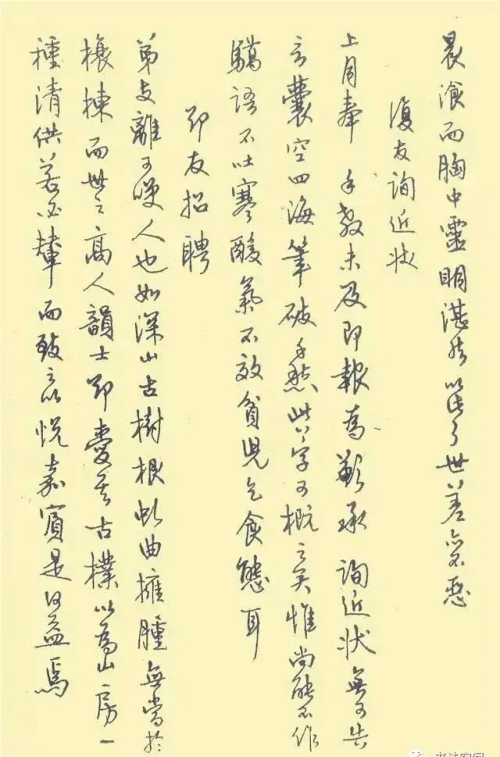 晨湌而胸中靈明湛然以任了世差亦不惡
復友詢近状
上月奉手教未及即報為歉承詢近状無可告
言囊空四海筆破千愁此八字可概之矣惟尚能不作
驕語不吐寒酸氣不效貧児乞食態耳
却友招聘
弟支離可唉人也如深山古樹根虬曲擁腫無當於
榱棟而世之高人韻士即愛其古樸以為山房一
種清供若必輦而致之以悦嘉賓是何益焉